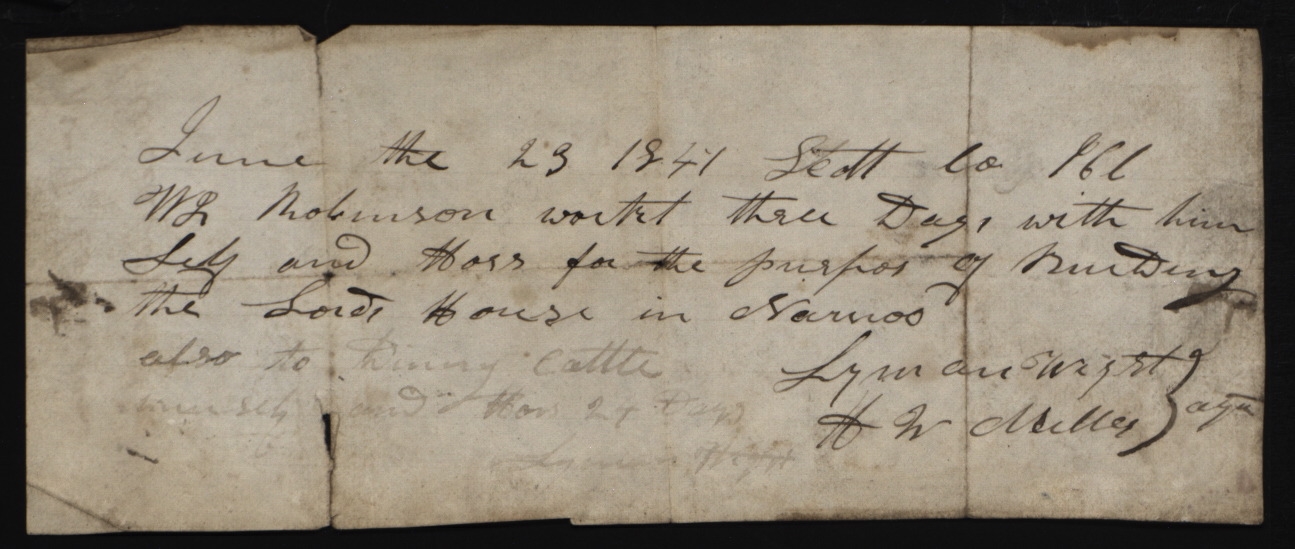 June the 23 1841 Scott Co Ill
WL Robinson workt three Days with him
Self and Hors for the purpos of Building
the Lords House in Nauvoo
also to driving Cattle
himself and Hors 2 1/2 Days
Lyman Wight
H W Miller
Lyman Wight